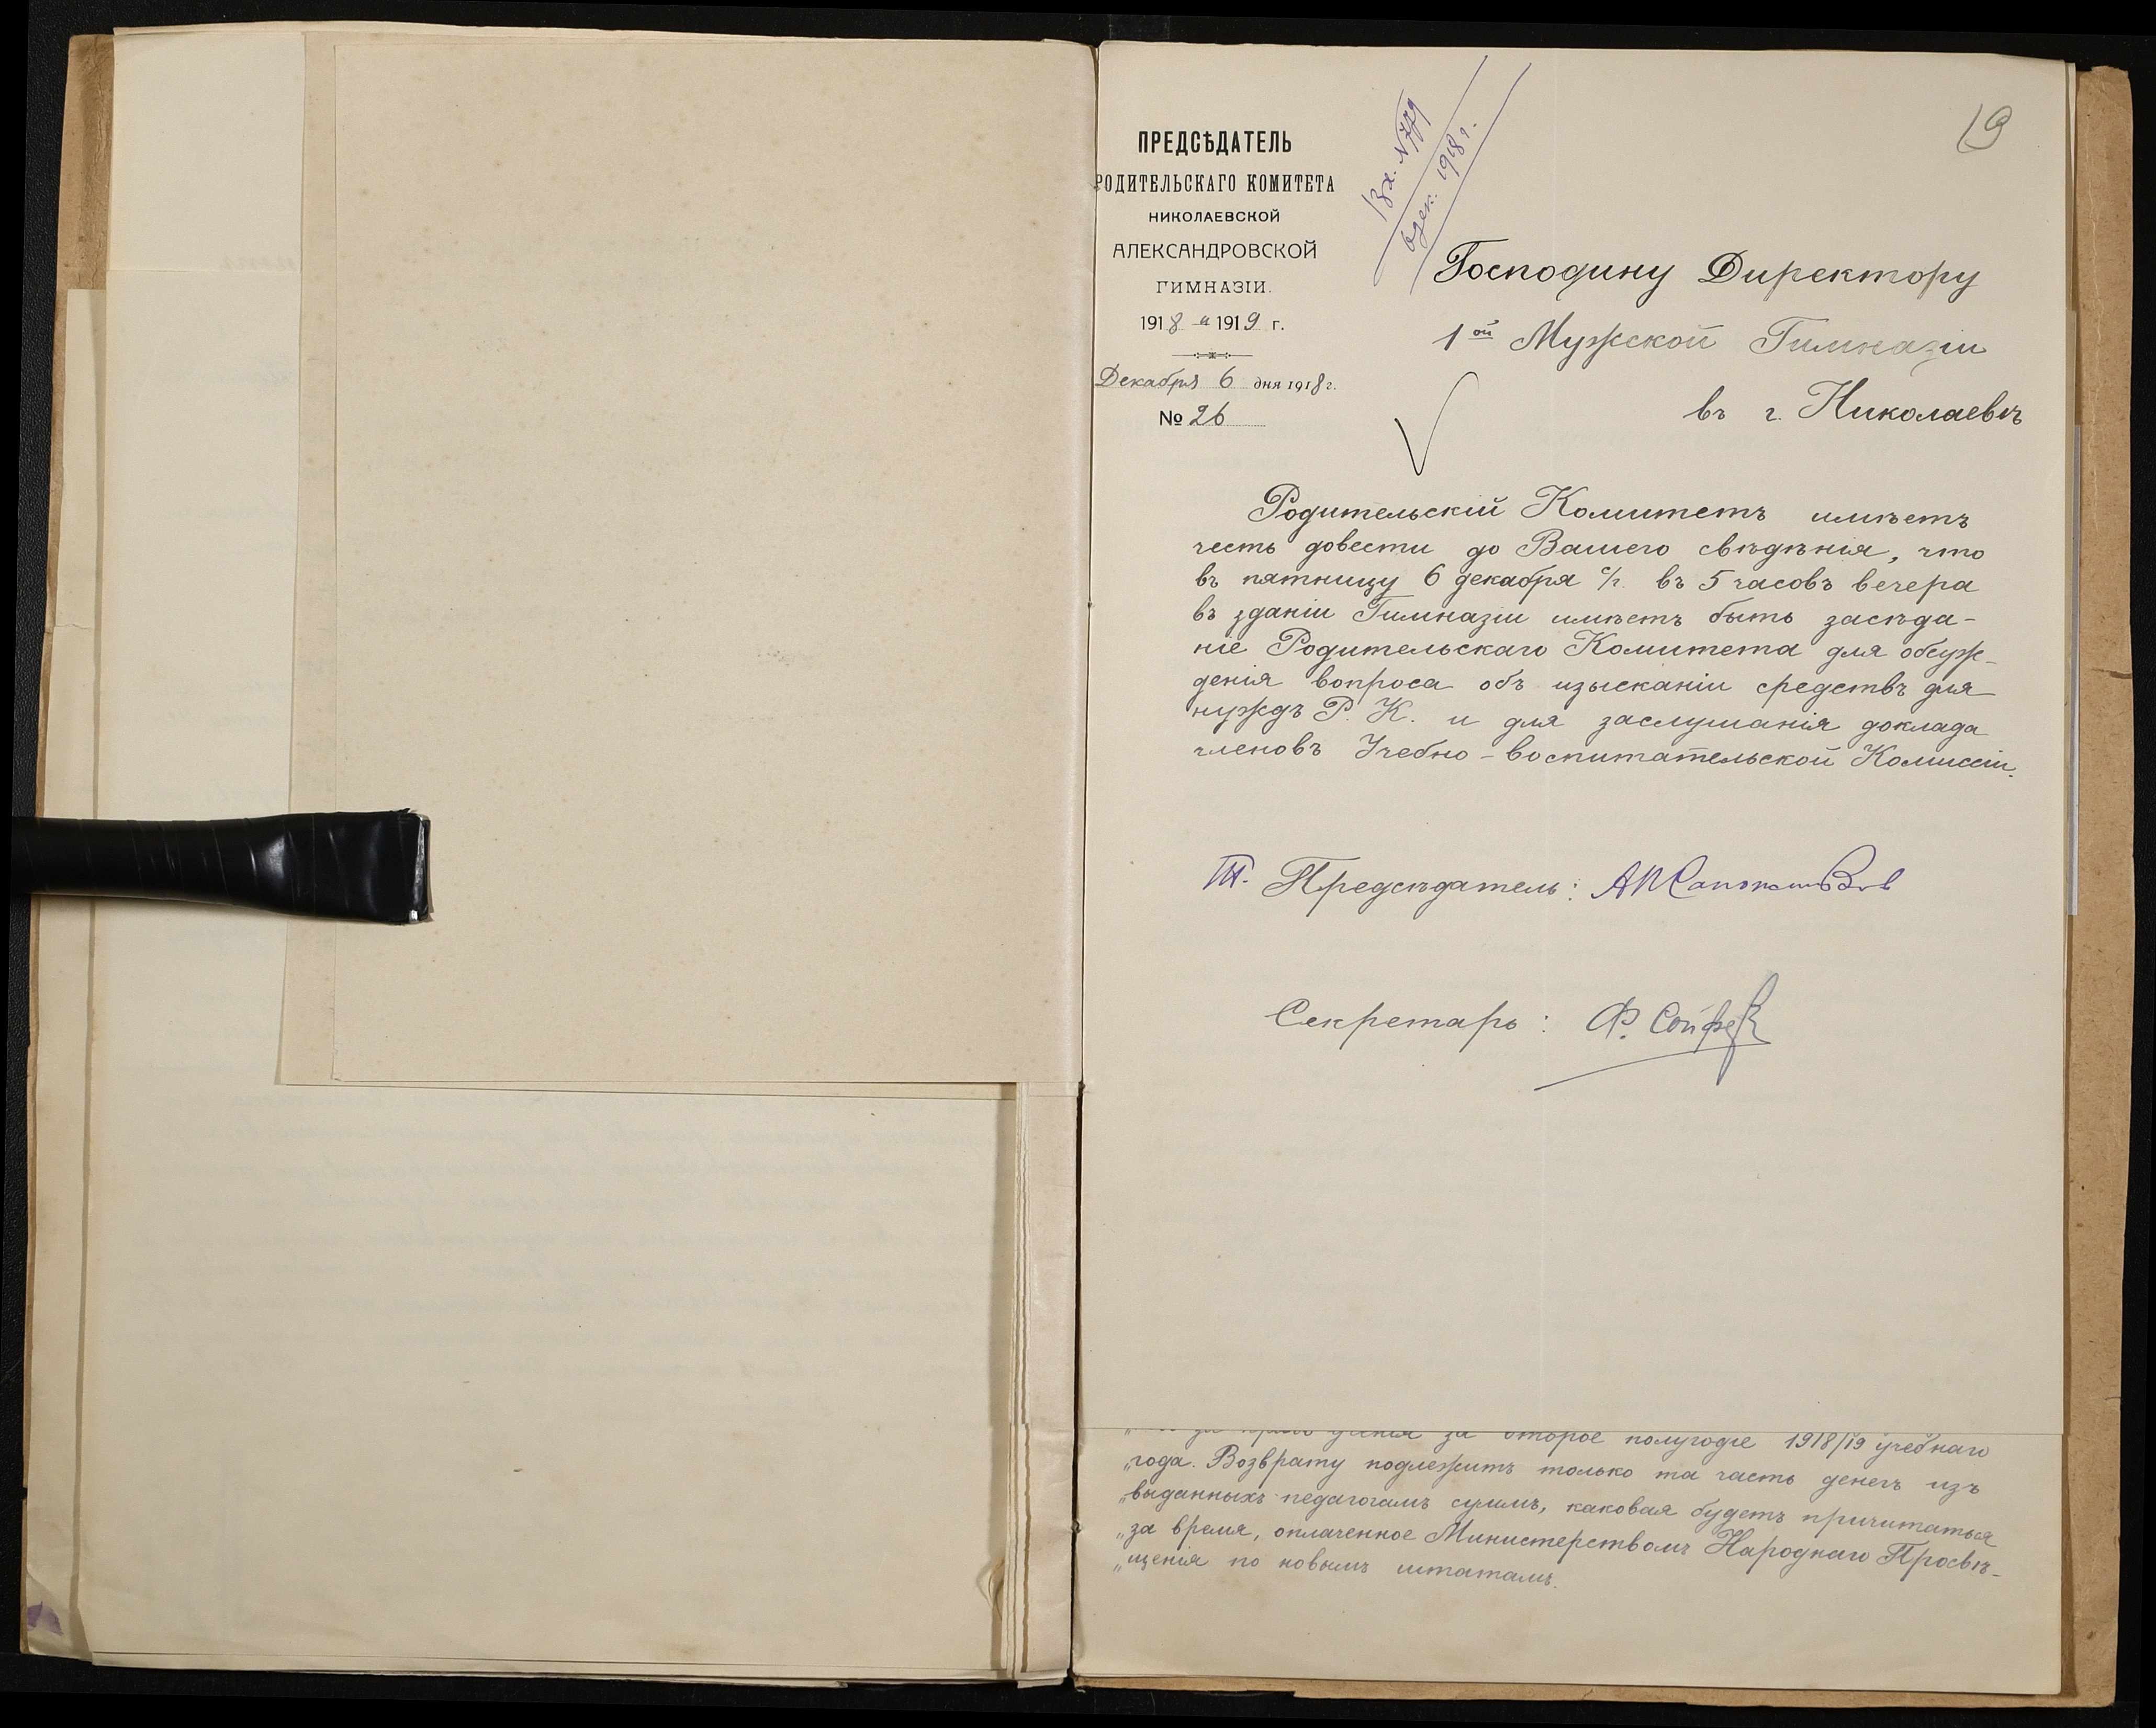 19
Вх. №779
6 дек. 1918 г.
ПРЕДСѢДАТЕЛЬ
РОДИТЕЛЬСКАГО КОМИТЕТА
НИКОЛАЕВСКОЙ
АЛЕКСАНДРОВСКОЙ
ГИМНАЗІИ.
1918 - 1919 г.
Декабря 6 дня 1918 г.
№ 26
Господину Директору
1ой Мужской Гимназіи
въ г. Николаевѣ
Родительскій Комитетъ имѣетъ
честь довести до Вашего свѣдѣнія, что
въ пятницу 6 декабря с/г. въ 5 часовъ вечера
въ зданіи Гимназіи имѣетъ быть засѣда-
ніе Родительскаго Комитета для обсуж-
денія вопроса объ изысканіи средствъ для
нуждъ Р. К. и для заслушанія доклада
членовъ Учебно-воспитательской Комиссіи.
Т. Предсѣдатель:
Секретарь: Ф.
за второе полугодіе 1918/19 учебнаго
„года. Возврату подлежитъ только та часть денегъ изъ
„выданныхъ педагогамъ суммъ, каковая будетъ причитаться
„за время, оплаченное Министерствомъ Народнаго Просвѣ-
„щенія по новымъ штатамъ.